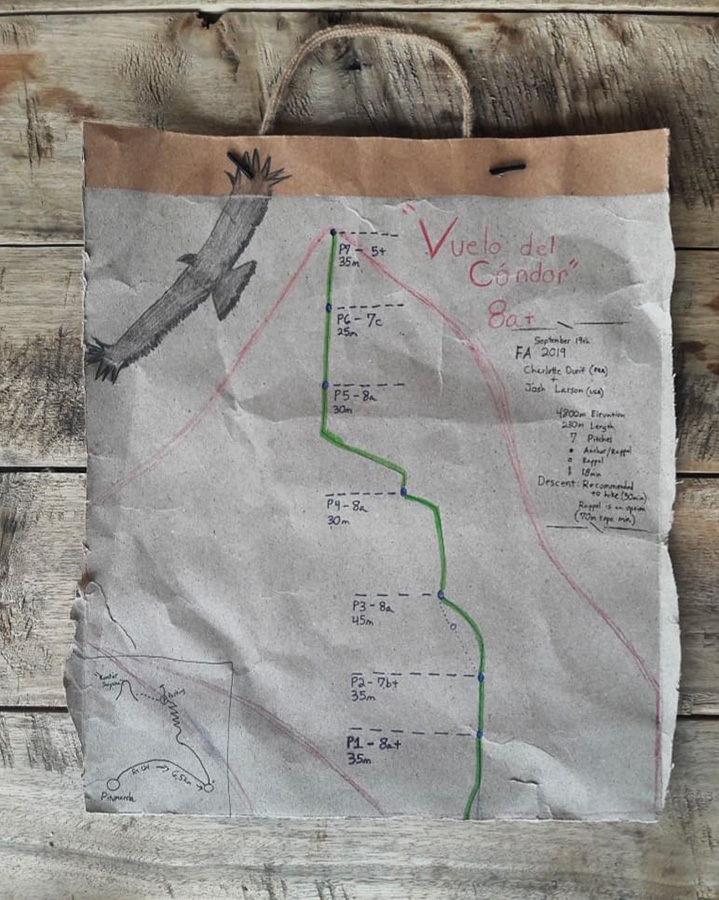 "Vuelo del
Cóndor"
8a+
September 19th
FA 2019
Charlotte Durif (FRA)
+
Josh Larson (USA)
4800m Elevation
230m Length
7 Pitches
Anchor/Rappel
Rappel
18min
Descent: Recommended
to hike (30min)
Rappel is an option
(70m rope min)
P7 - 5+
35m
P6 - 7c
25m
P5 - 8a
30m
P4 - 8a
30m
P3 - 8a
45m
P2 - 7b+
35m
P1 - 8a+
35m
Parking